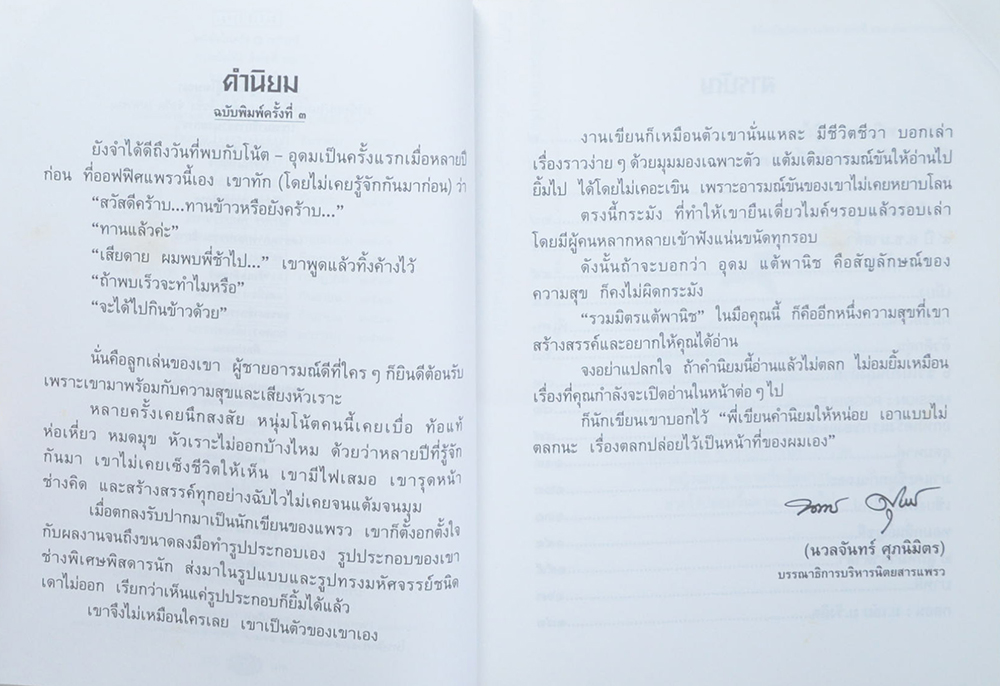 คำนิยม
ฉบับพิมพ์ครั้งที่ ๓
ยังจำได้ดีถึงวันที่พบกับโน้ต – อุดมเป็นครั้งแรกเมื่อหลายปี
ก่อน ที่ออฟฟิศแพรวนี้เอง เขาทัก (โดยไม่เคยรู้จักกันมาก่อน) ว่า
“สวัสดีคร้าบ...ทานข้าวหรือยังคร้าบ...”
“ทานแล้วค่ะ”
“เสียดาย ผมพบพี่ช้าไป...” เขาพูดแล้วทิ้งค้างไว้
“ถ้าพบเร็วจะทำไมหรือ”
“จะได้ไปกินข้าวด้วย”
นั่นคือลูกเล่นของเขา ผู้ชายอารมณ์ดีที่ใคร ๆ ก็ยินดีต้อนรับ
เพราะเขามาพร้อมกับความสุขและเสียงหัวเราะ
หลายครั้งเคยนึกสงสัย หนุ่มโน้ตคนนี้เคยเบื่อ ท้อแท้
ห่อเหี่ยว หมดมุข หัวเราะไม่ออกบ้างไหม ด้วยว่าหลายปีที่รู้จัก
กันมา เขาไม่เคยเซ็งชีวิตให้เห็น เขามีไฟเสมอ เขารุดหน้า
ช่างคิด และสร้างสรรค์ทุกอย่างฉับไวไม่เคยจนแต้มจนมุม
เมื่อตกลงรับปากมาเป็นนักเขียนของแพรว เขาก็ตั้งอกตั้งใจ
กับผลงานจนถึงขนาดลงมือทำรูปประกอบเอง รูปประกอบของเขา
ช่างพิเศษพิสดารนัก ส่งมาในรูปแบบและรูปทรงมหัศจรรย์ชนิด
เดาไม่ออก เรียกว่าเห็นแค่รูปประกอบก็ยิ้มได้แล้ว
เขาจึงไม่เหมือนใครเลย เขาเป็นตัวของเขาเอง
งานเขียนก็เหมือนตัวเขานั่นแหละ มีชีวิตชีวา บอกเล่า
เรื่องราวง่าย ๆ ด้วยมุมมองเฉพาะตัว แต้มเติมอารมณ์ขันให้อ่านไป
ยิ้มไป ได้โดยไม่เคอะเขิน เพราะอารมณ์ขันของเขาไม่เคยหยาบโลน
ตรงนี้กระมัง ที่ทำให้เขายืนเดี่ยวไมค์ฯรอบแล้วรอบเล่า
โดยมีผู้คนหลากหลายเข้าฟังแน่นขนัดทุกรอบ
ดังนั้นถ้าจะบอกว่า อุดม แต้พานิช คือสัญลักษณ์ของ
ความสุข ก็คงไม่ผิดกระมัง
“รวมมิตรแต้พานิช” ในมือคุณนี้ ก็คืออีกหนึ่งความสุขที่เขา
สร้างสรรค์และอยากให้คุณได้อ่าน
จงอย่าแปลกใจ ถ้าคำนิยมนี้อ่านแล้วไม่ตลก ไม่อมยิ้มเหมือน
เรื่องที่คุณกำลังจะเปิดอ่านในหน้าต่อ ๆ ไป
ก็นักเขียนเขาบอกไว้ “พี่เขียนคำนิยมให้หน่อย เอาแบบไม่
ตลกนะ เรื่องตลกปล่อยไว้เป็นหน้าที่ของผมเอง”
(นวลจันทร์ ศุภนิมิตร)
บรรณาธิการบริหารนิตยสารแพรว